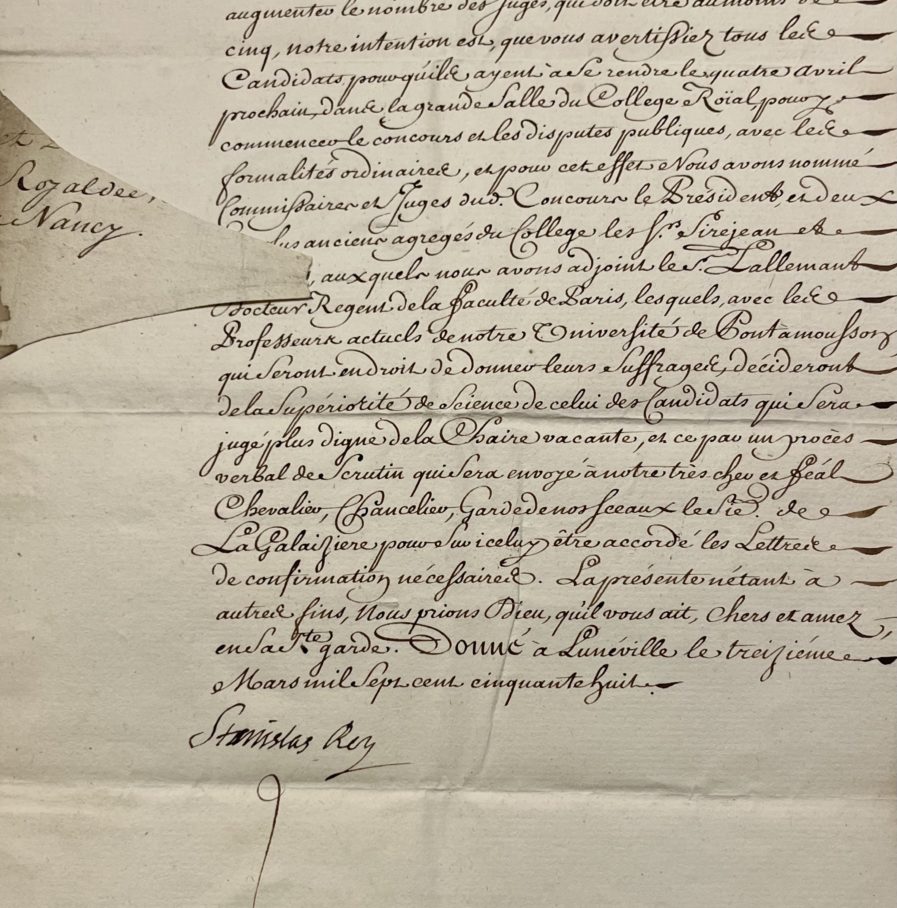 augmenter le nombre des Juges, qui doit être au moins de
cinq, notre intention est, que vous avertissiez tous les
Candidats pour qu'ils ayent à se rendre le quatre avril
prochain, dans la grande Salle du College Roïal, pour y
commencer le concours et les disputes publiques, avec les
formalités ordinaires, et pour cet effet Nous avons nommé
Commissaires et Juges dud. Concours le Président, et deux
anciens agregés du College les Srs. Sirejean et
, auxquels nous avons adjoint le Sr. Lallemant
Docteur Regent de la Faculté de Paris, lesquels, avec les
Professeurs actuels de notre Université de Pontàmousson
qui seront en droit de donner leurs Suffrages, décideront
de la Supériorité de Science de celui des Candidats qui Sera
jugé plus digne de la Chaire vacante, et ce par un procès
verbal de Scrutin qui sera envoyé à notre très cher et féal
Chevalier, Chancelier, Garde de nos sceaux le Sr. de
La Galaiziere pour sur icelui être accordé les Lettres
de confirmation nécessaires. La présente n'étant à
autres fins, Nous prions Dieu, qu'il vous ait, Chers et amez,
en Sa Ste garde. Donné à Lunéville le treiziéme
Mars mil Sept cent cinquante huit.
Stanislas Roy
Royal des
Nancy.